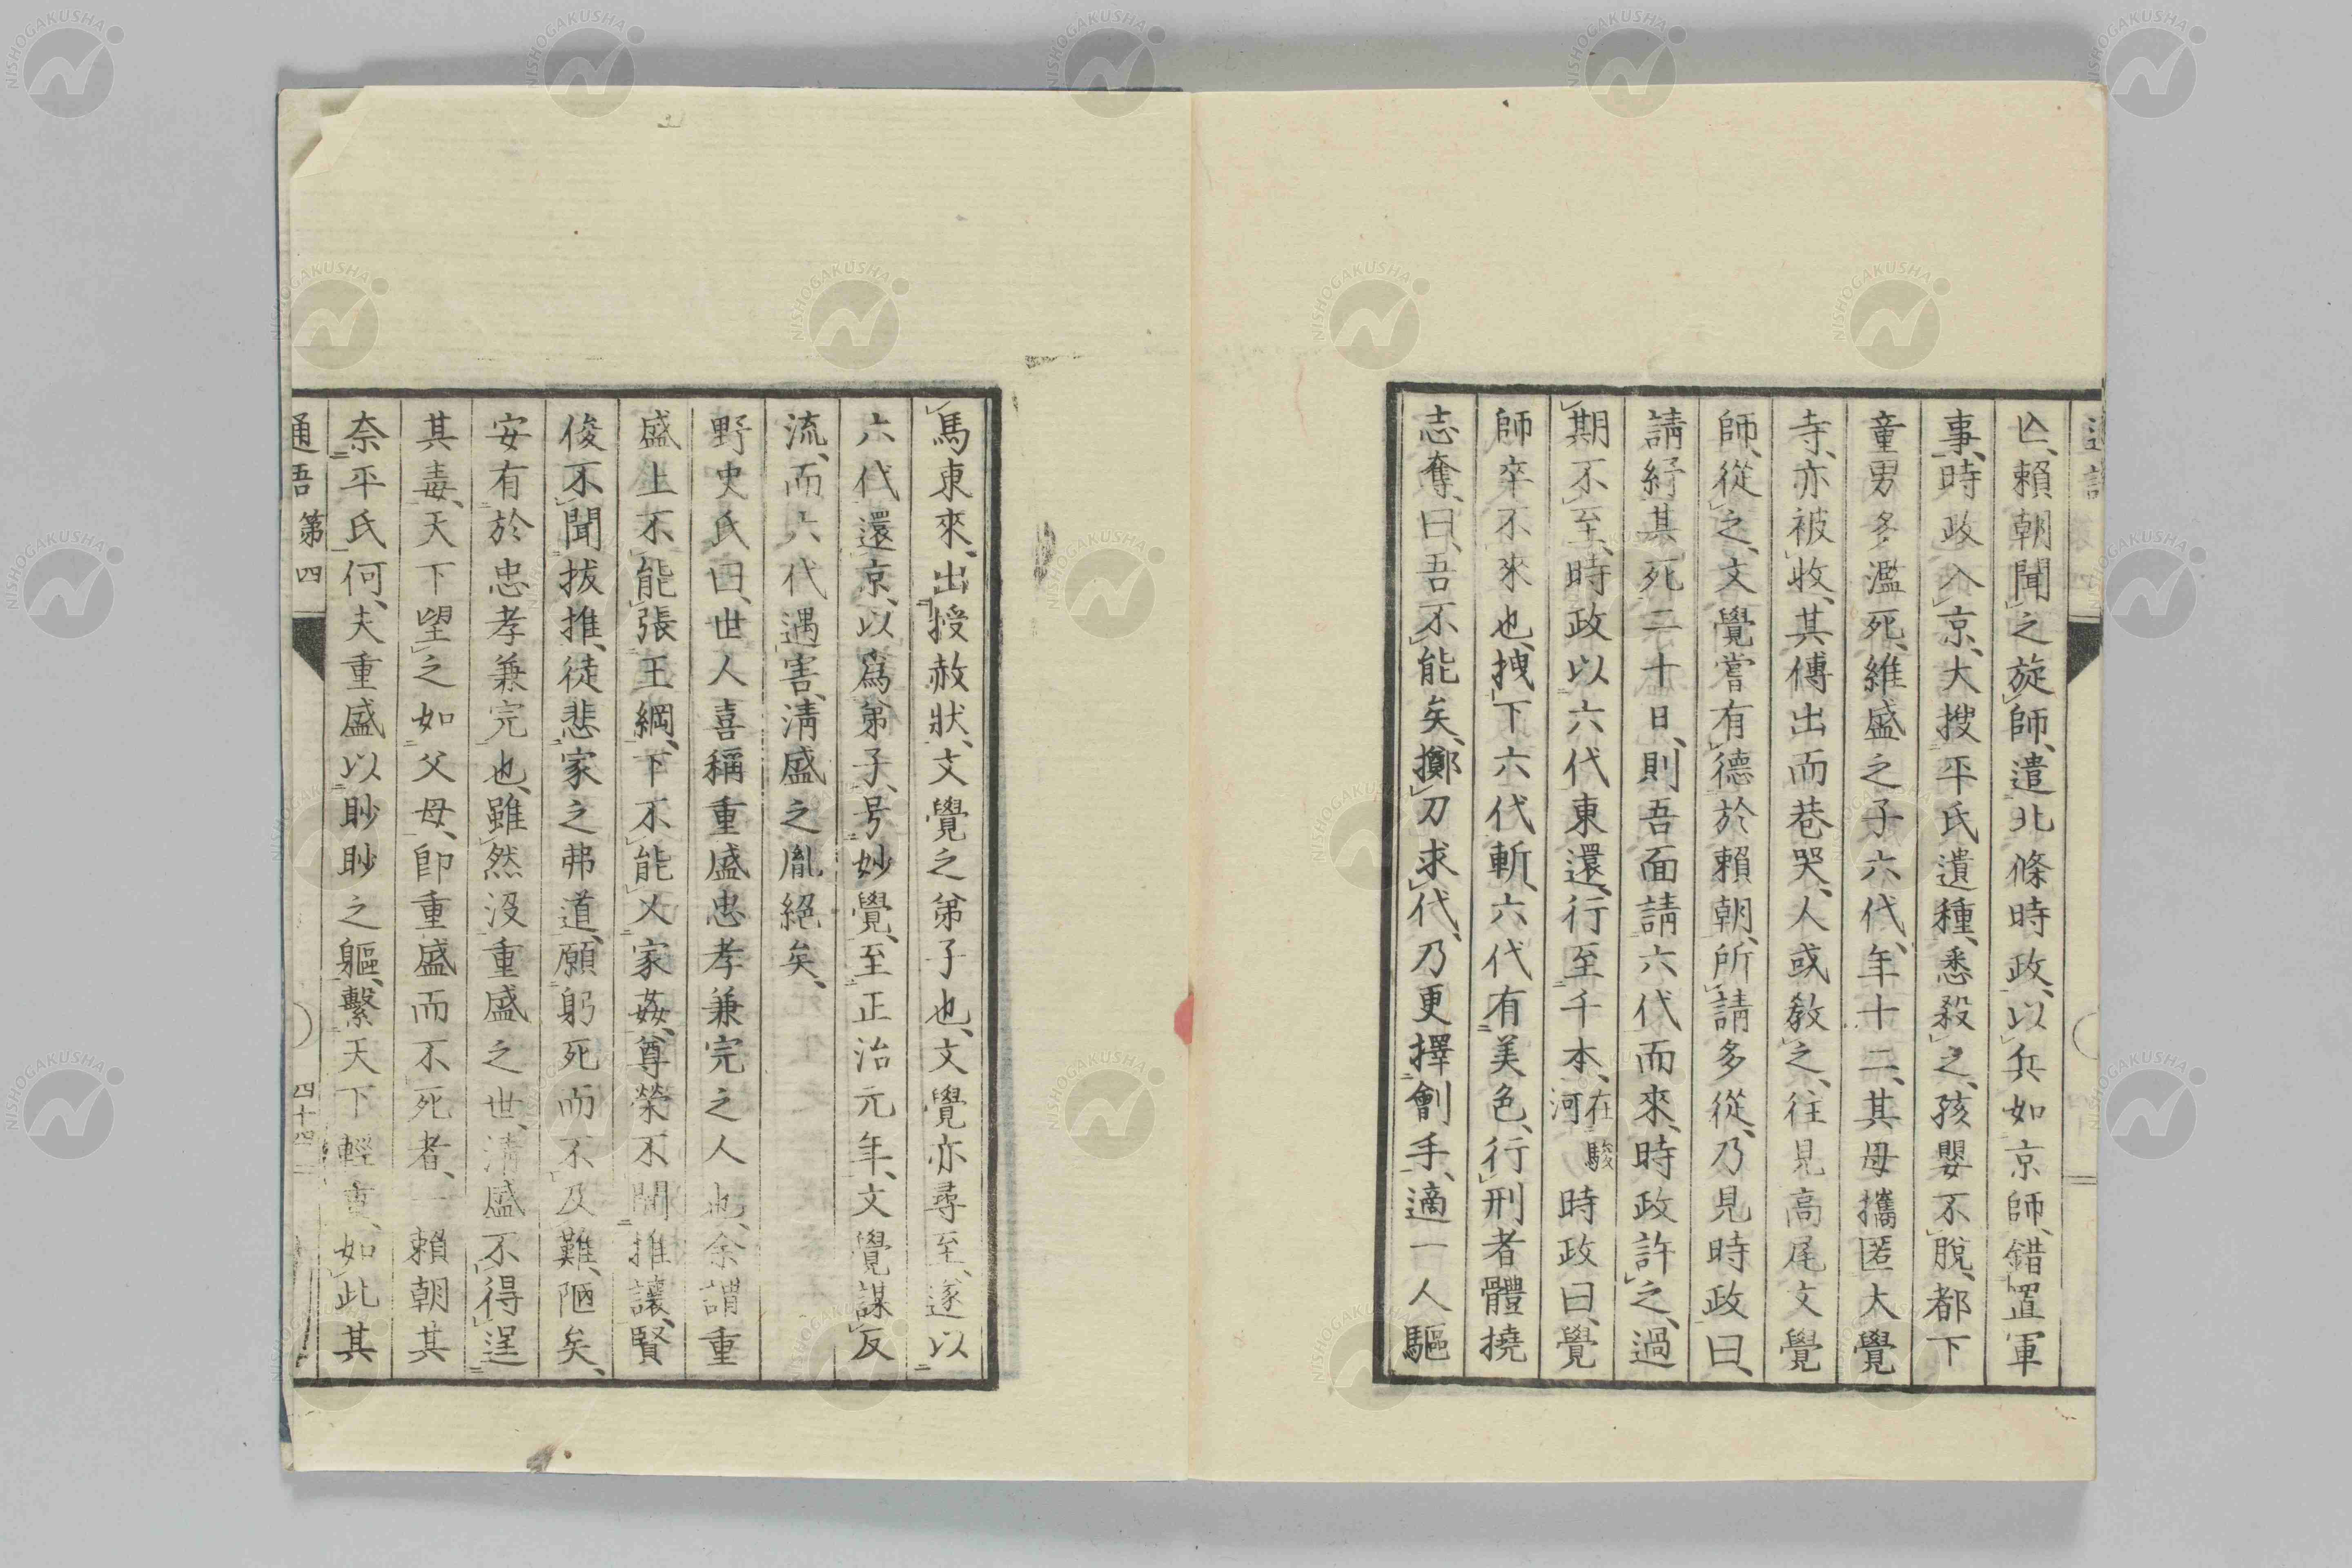 亾、賴朝聞之旋師、遣北條時政、以兵如京師、錯置軍
事、時政入京、大搜平氏遺種、悉殺之、孩嬰不脫、都下
童男多濫死、維盛之子六代、年十二、其母攜匿大覺
寺、亦被收、其傅出而巷哭、人或教之、往見高尾文覺
師、從之、文覺嘗有德於賴朝、所請多從、乃見時政曰、
請紓其死二十日、則吾面請六代而來、時政許之、過
期不至、時政以六代東還、行至千本、在駿河時政曰、覺
師卒不來也、拽下六代斬、六代有美色、行刑者體撓
志奪、曰、吾不能矣、擲刀求代、乃更擇劊手、適一人驅
馬東來、出授赦狀、文覺之弟子也、文覺亦尋至、遂以
六代還京、以爲弟子、号妙覺、至正治元年、文覺謀反
流、而六代遇害、清盛之胤絕矣、
野史氏曰、世人喜稱重盛忠孝兼完之人也、余謂重
盛上不能張王綱、下不能乂家姦、尊榮不聞推讓、賢
俊不聞拔推、徒悲家之弗道、願躬死而不及難、陋矣、
安有於忠孝兼完也、雖然沒重盛之世、清盛不得逞
其毒、天下望之如父母、卽重盛而不死者、一賴朝其
奈平氏何、夫重盛以眇眇之軀、繫天下輕重、如此其
通語 第四
四十四
NISHOGAKUSHA